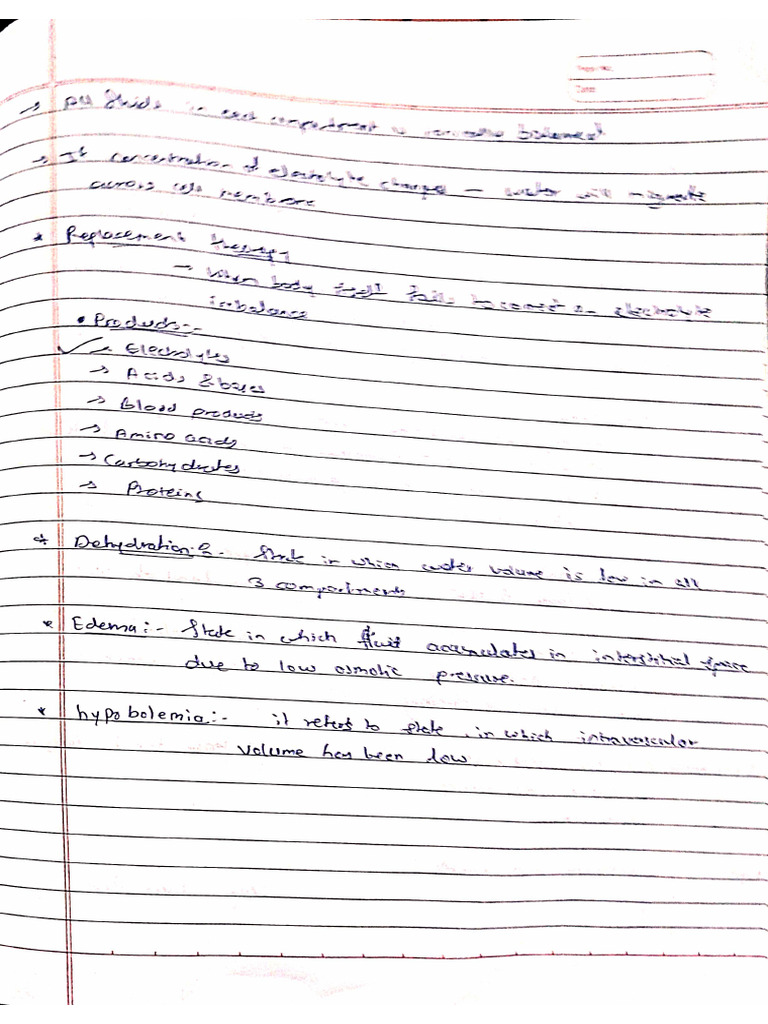 → All fluids in each compartment is balanced
→ If concentration of electrolyte changes – water will migrate
across cell membrane
* Replacement therapy
→ When body itself fails to correct an electrolyte
imbalance
• Products:-
→ Electrolytes
→ Acids & bases
→ Blood products
→ Amino acids
→ Carbohydrates
→ Proteins
* Dehydration:- State in which water volume is low in all
3 compartments
* Edema:- State in which fluit accumulates in interstitial space
due to low osmotic pressure.
* hypobolemia:- it refers to state in which intravascular
volume has been low